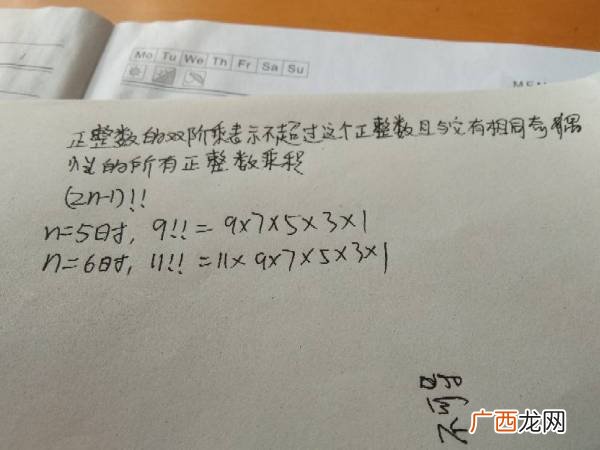 Mo Tu We Th Fr Sa Su
正整数的双阶乘表示不超过这个正整数且与它有相同奇偶
性的所有正整数乘积
(2n-1)!!
n=5时, 9!! = 9×7×5×3×1
n=6时, 11!! = 11×9×7×5×3×1
广西龙网